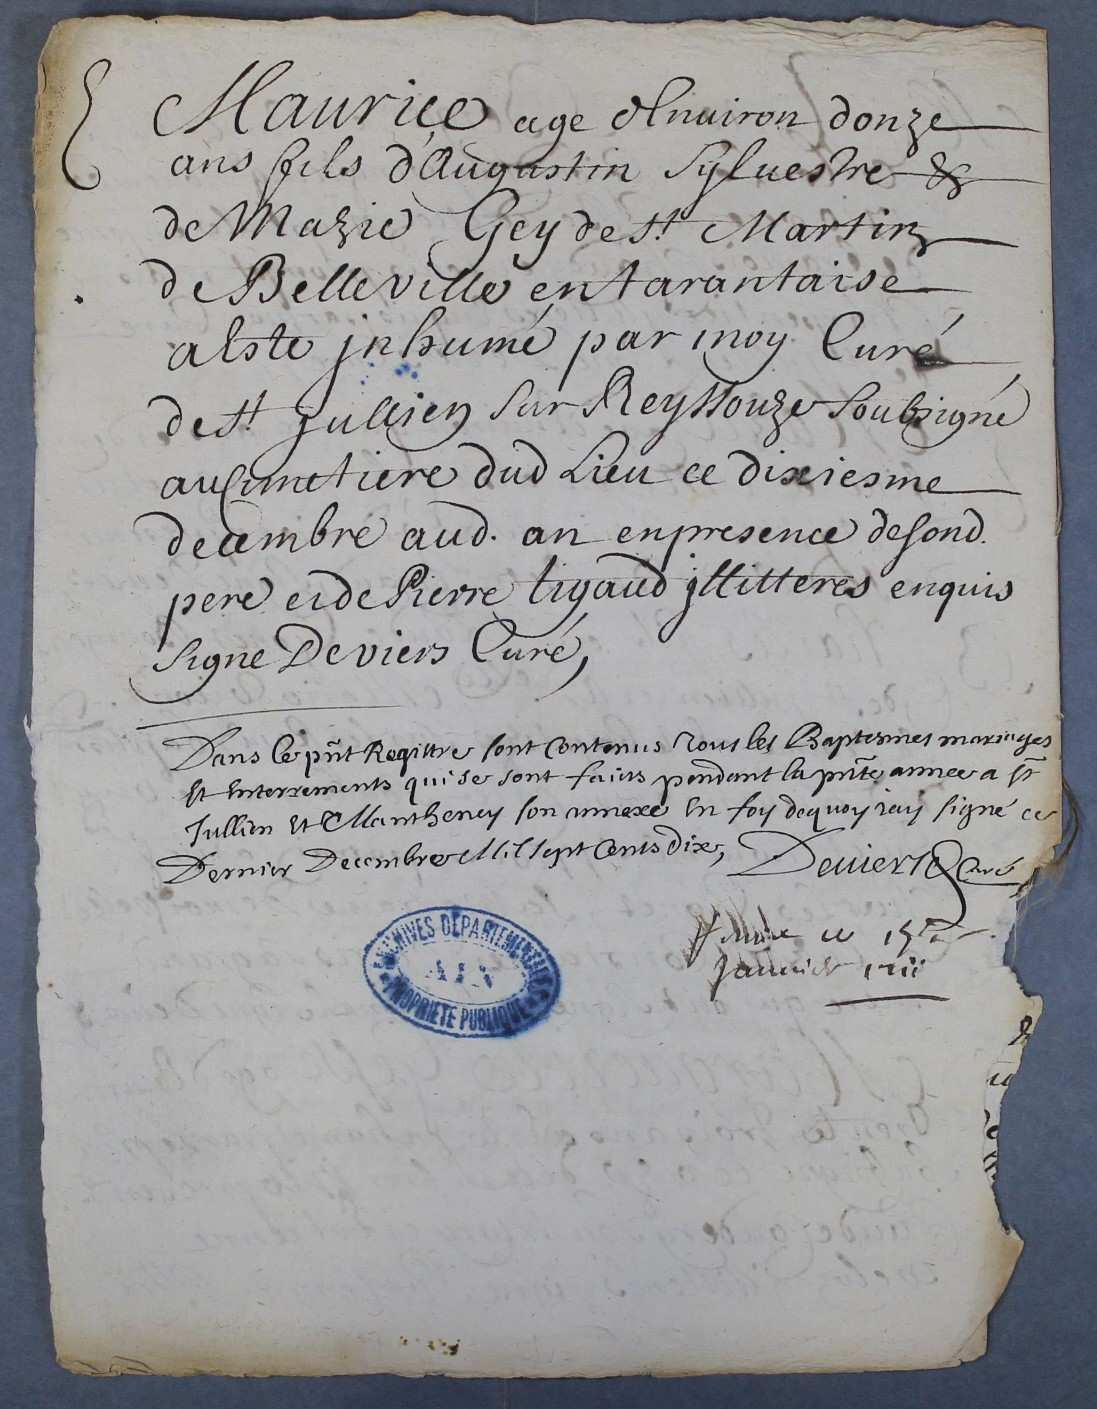 Maurice age d'Enuiron donze
ans fils d'Augustin Syluestre &
de Marie Gey de St. Martin
de Belleville en tarantaise
a Este jnhumé par moy Curé
de St. jullien sur Reyssouze soubsigné
au Cimetiere dud Lieu ce dixiesme
decembre aud. an en presence de sond.
pere et de Pierre ligaud jllitteres enquis
signe Deviers Curé,
Dans le pnt Registre sont Contenus Tous les Baptesmes mariages
Et Enterrements qui se sont faits pendant la pnte annee a St
Jullien Et Mantheney son annexe En foy de quoy j'ay signé ce
Dernier Decembre Mil sept Cents dix, Deviers Curé
ce
Januier 1711
ARCHIVES DEPARTEMENTALES
AIN
PROPRIETE PUBLIQUE